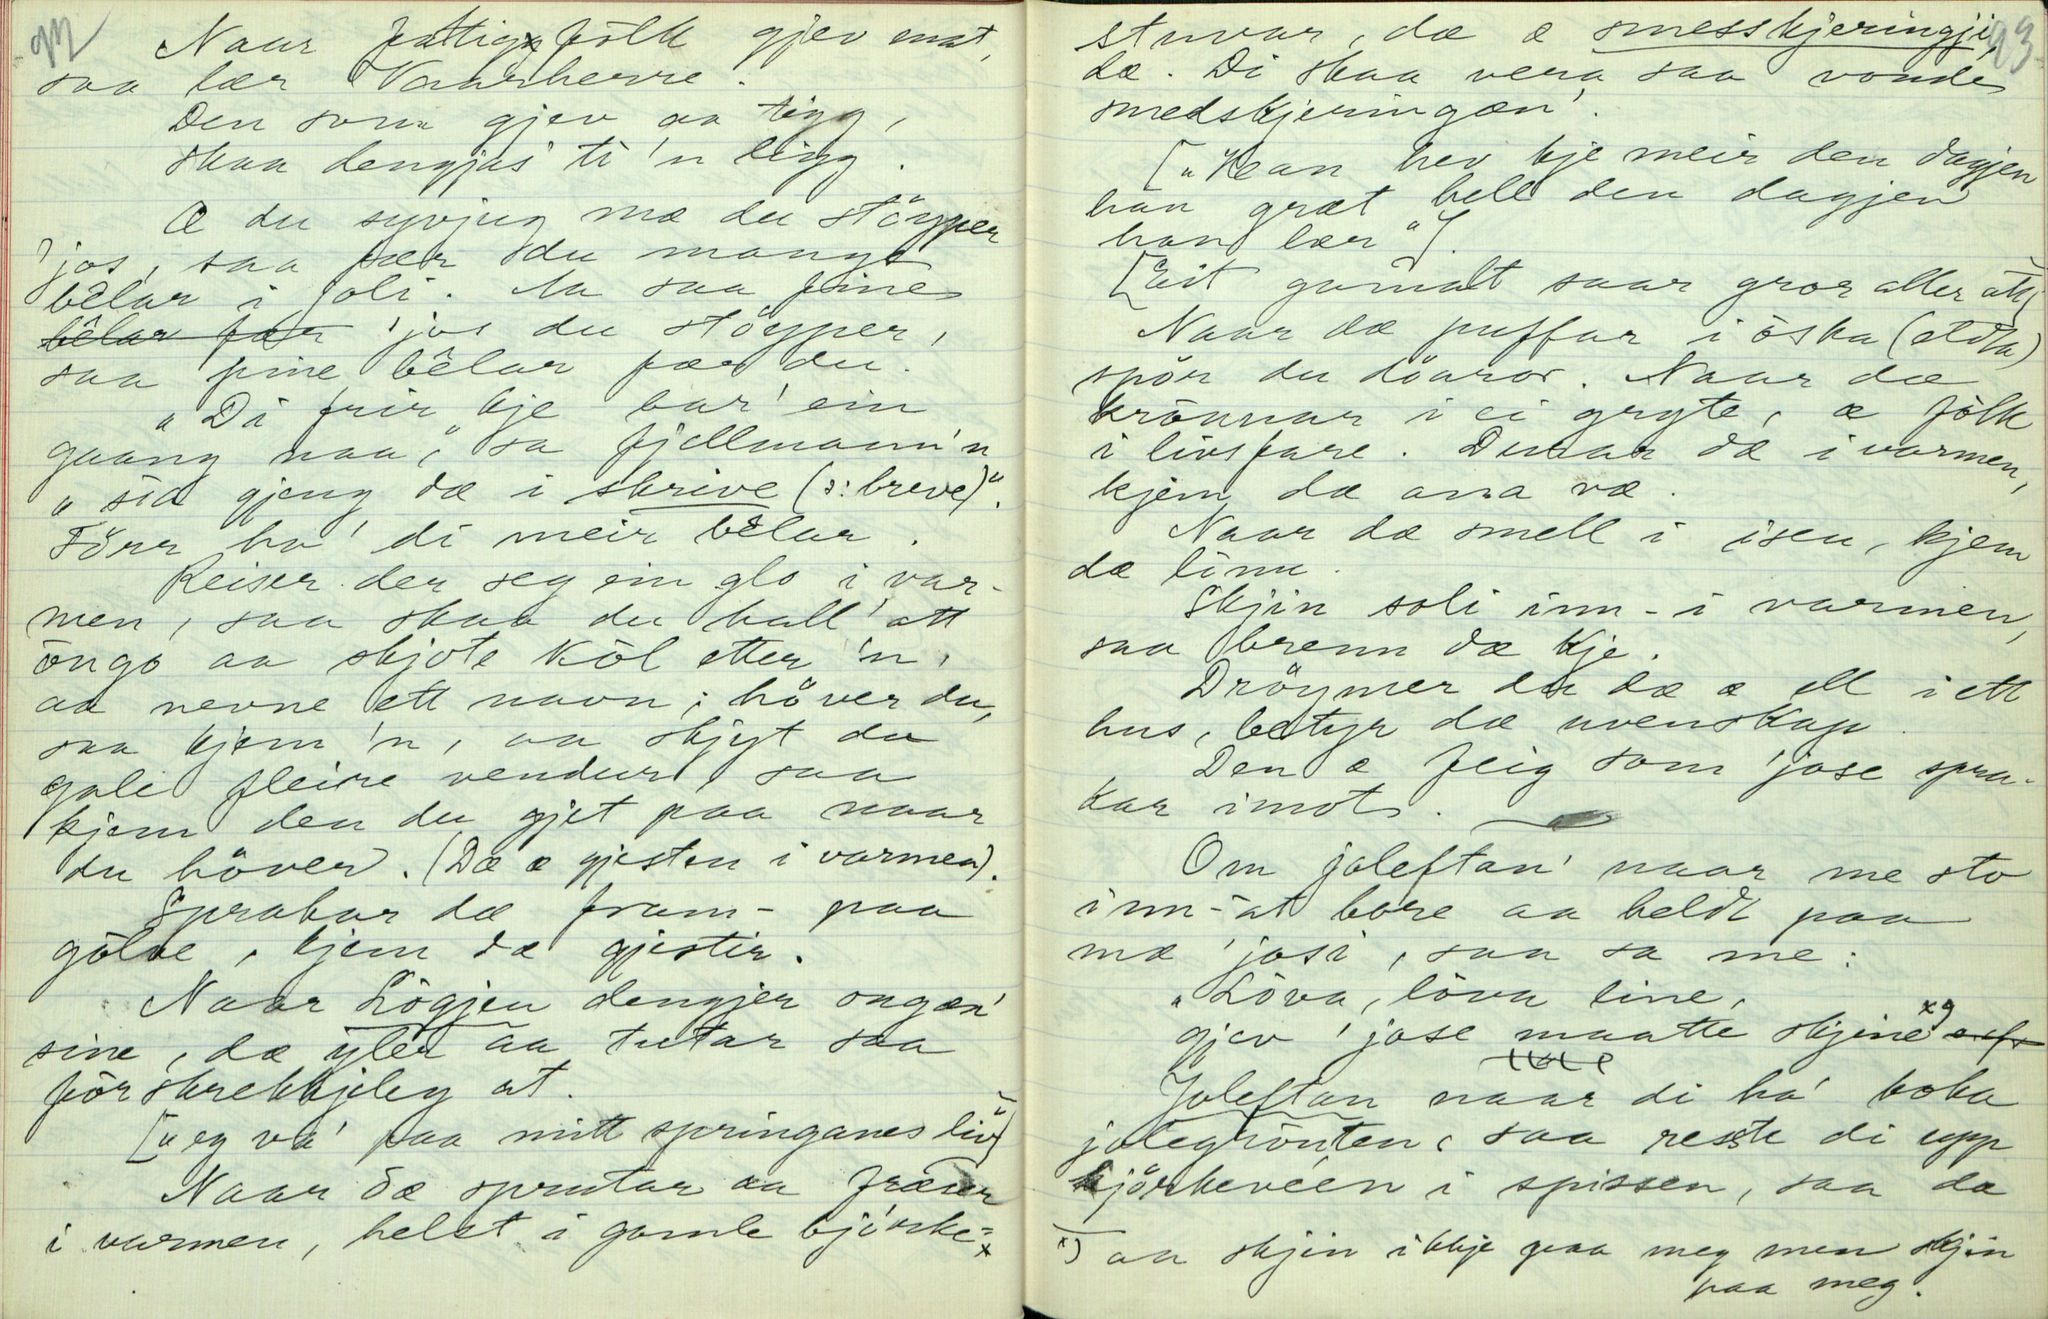 92
Naar fattige fölk gjev mat,
saa lær Vaarherre.
Den som gjev aa tigg,
skaa dengjas ti 'n ligg.
Æ du syvjug mæ du stöyper
'jos, saa fær du mange
bêlar i joli. Aa saa fine
bêlar fær 'jos du stöyper,
saa fine bêlar fær du.
"Di frir kje bar' ein
gaang naa," sa fjellmann'n
"sia gjeng dæ i skrive (ɔ: breve)".
Förr ha' di meir bêlar.
Reiser der seg ein glo i var-
men, saa skaa du hall' att
öugo aa skjote köl etter 'n,
aa nevne ett navn; höver du,
saa kjem 'n, aa skjyt du
gale fleire vendur, saa
kjem den du gjet paa naar
du höver. (Dæ æ gjesten i varmen).
Sprakar dæ fram-paa
gölve, kjem dæ gjestir.
Naar Lögjen dengjer ongan'
sine, dæ yler aa tutar saa
förskrekkjeleg at.
["eg va' paa mitt springanes liv"]
Naar dæ sprutar aa fræser
i varmen, helst i gamle bjørke-
93
stuvar, dæ æ smesskjeringji,
dæ. Di skaa vera saa vonde
smedskjeringan'.
["Han hev kje meir den dagjen
han græt hell den dagjen
han lær"].
[Eit gamalt saar gror aller att]
Naar dæ puffar i öska (eldta)
spör du döaror. Naar dæ
krönnar i ei gryte, æ fölk
i livsfare. Dunar dæ i varmen,
kjem dæ ana væ.
Naar dæ smell i isen, kjem
dæ linn.
Skjin soli inn-i varmen,
saa brenn dæ kje.
Dröymer du dæ æ ell i ett
hus, betyr dæ uvenskap.
Den æ feig som 'jose spra-
kar imot.
Om joleftan' naar me sto
inn-at bore aa heldt paa
mæ 'josi, saa sa me:
"Löva, löva line,
gjev 'jose maatte skjine x)
Joleftan naar di ha' koka
jolegrauten, saa reste di upp
bjørkeveen i spissen, saa dæ
x) aa skjin ikkje paa meg men skjin
paa meg.